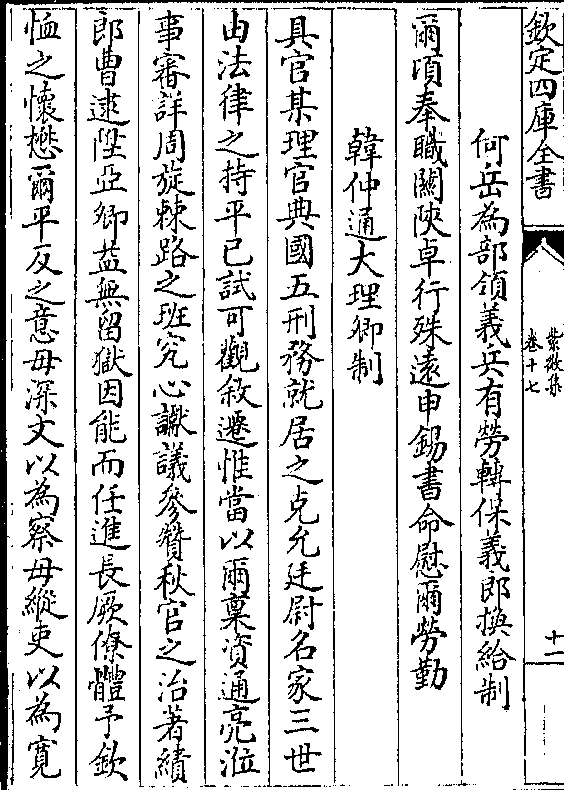 欽定四庫全書
紫微集
卷十七
十一
何岳為部領義兵有勞轉保義郎換給制
爾頃奉職關陝卓行殊遠申錫書命慰爾勞勤
韓仲通大理卿制
具官某理官典國五刑務就居之克允廷尉名家三世
由法律之持平已試可觀敘遷惟當以爾稟資通亮涖
事審詳周旋棘路之班究心讞議參贊秋官之治著績
郎曹逮陞亞卿益無留獄因能而任進長厥僚體予欽
恤之懷懋爾平反之意毋深文以為察毋縱吏以為寬